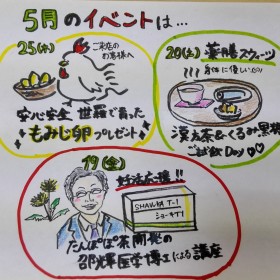 5月のイベントは…
25(水)
ご来店の
お客様へ
安心安全 世羅で育った
もみじ卵プレゼント
20(土) 薬膳スウィーツ
身体に優しい
漢方茶&くるみ黒糖
ご試飲Day
19(金)
妊活応援!!
SHAWKA T-1
ショーキT-1
たんぽぽ茶開発の
邵輝医学博士による講座